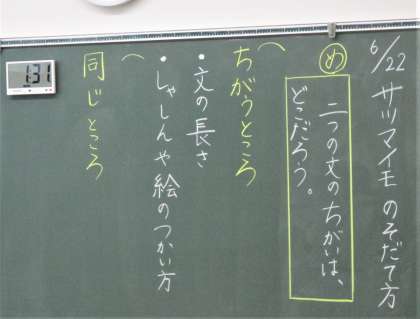 6/22 サツマイモのそだて方
め
二つの文のちがいは、
どこだろう。
ちがうところ
・文の長さ
・しゃしんや絵のつかい方
同じところ
1:31